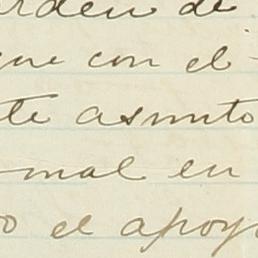 orden de
que con el
te asunto
mal en
o el apoyo